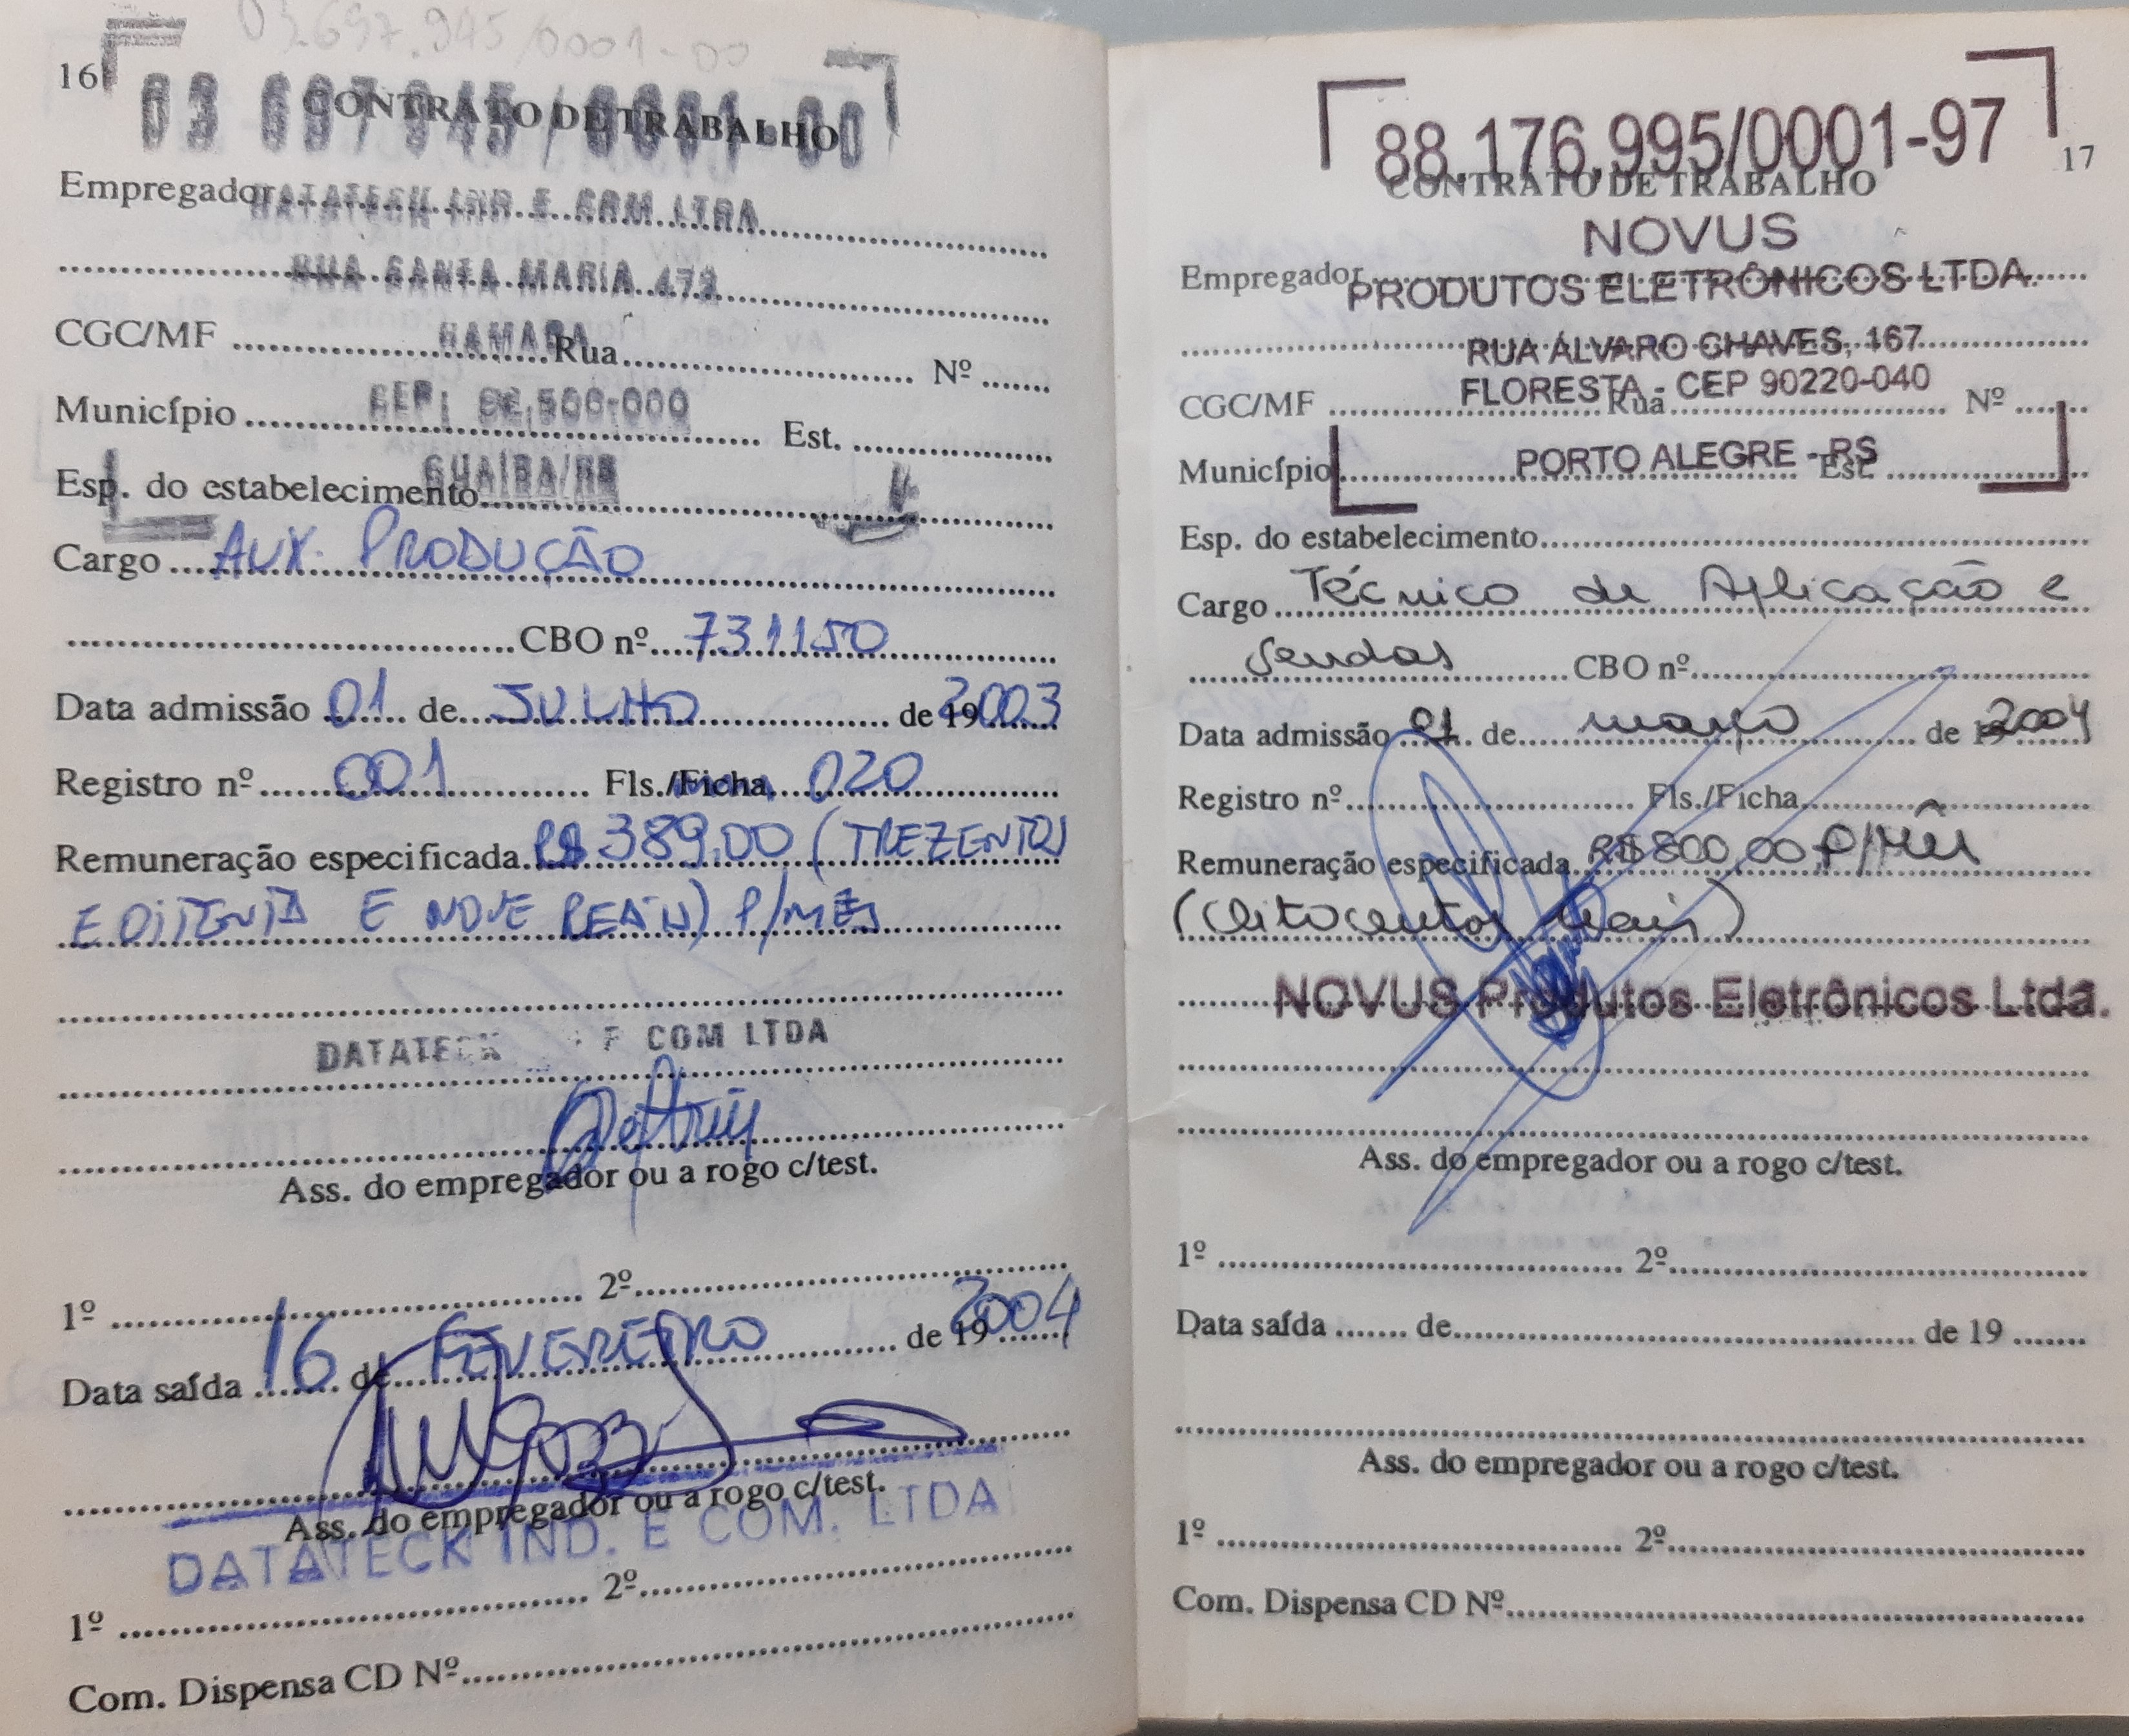 03.697.945/0001-00
16
03 697 945 / 0001 - 00
CONTRATO DE TRABALHO
Empregador DATATECK IND E COM LTDA
RUA SANTA MARIA 472
CGC/MF ........ Rua ........ Nº ........
Município CEP: 92.500-000 Est. ........
Esp. do estabelecimento GUAIBA/RS
Cargo AUX. PRODUÇÃO
CBO nº 731150
Data admissão 01 de JULHO de 19 2003
Registro nº 001 Fls./Ficha 020
Remuneração especificada R$ 389,00 (TREZENTOS
E OITENTA E NOVE REAIS) P/MÊS
DATATECK E COM LTDA
Ass. do empregador ou a rogo c/test.
1º ........ 2º ........
Data saída 16 de FEVEREIRO de 19 2004
Ass. do empregador ou a rogo c/test.
DATATECK IND. E COM. LTDA
1º ........ 2º ........
Com. Dispensa CD Nº ........
88.176.995/0001-97
17
CONTRATO DE TRABALHO
NOVUS
Empregador PRODUTOS ELETRÔNICOS LTDA.
RUA ÁLVARO CHAVES, 167
FLORESTA - CEP 90220-040
CGC/MF ........ Rua ........ Nº ........
Município PORTO ALEGRE - RS Est. ........
Esp. do estabelecimento ........
Cargo Técnico de Aplicação e
Vendas CBO nº ........
Data admissão 01 de março de 19 2004
Registro nº ........ Fls./Ficha ........
Remuneração especificada R$ 800,00 P/Mês
(Oitocentos Reais)
NOVUS Produtos Eletrônicos Ltda.
Ass. do empregador ou a rogo c/test.
1º ........ 2º ........
Data saída ........ de ........ de 19 ........
Ass. do empregador ou a rogo c/test.
1º ........ 2º ........
Com. Dispensa CD Nº ........